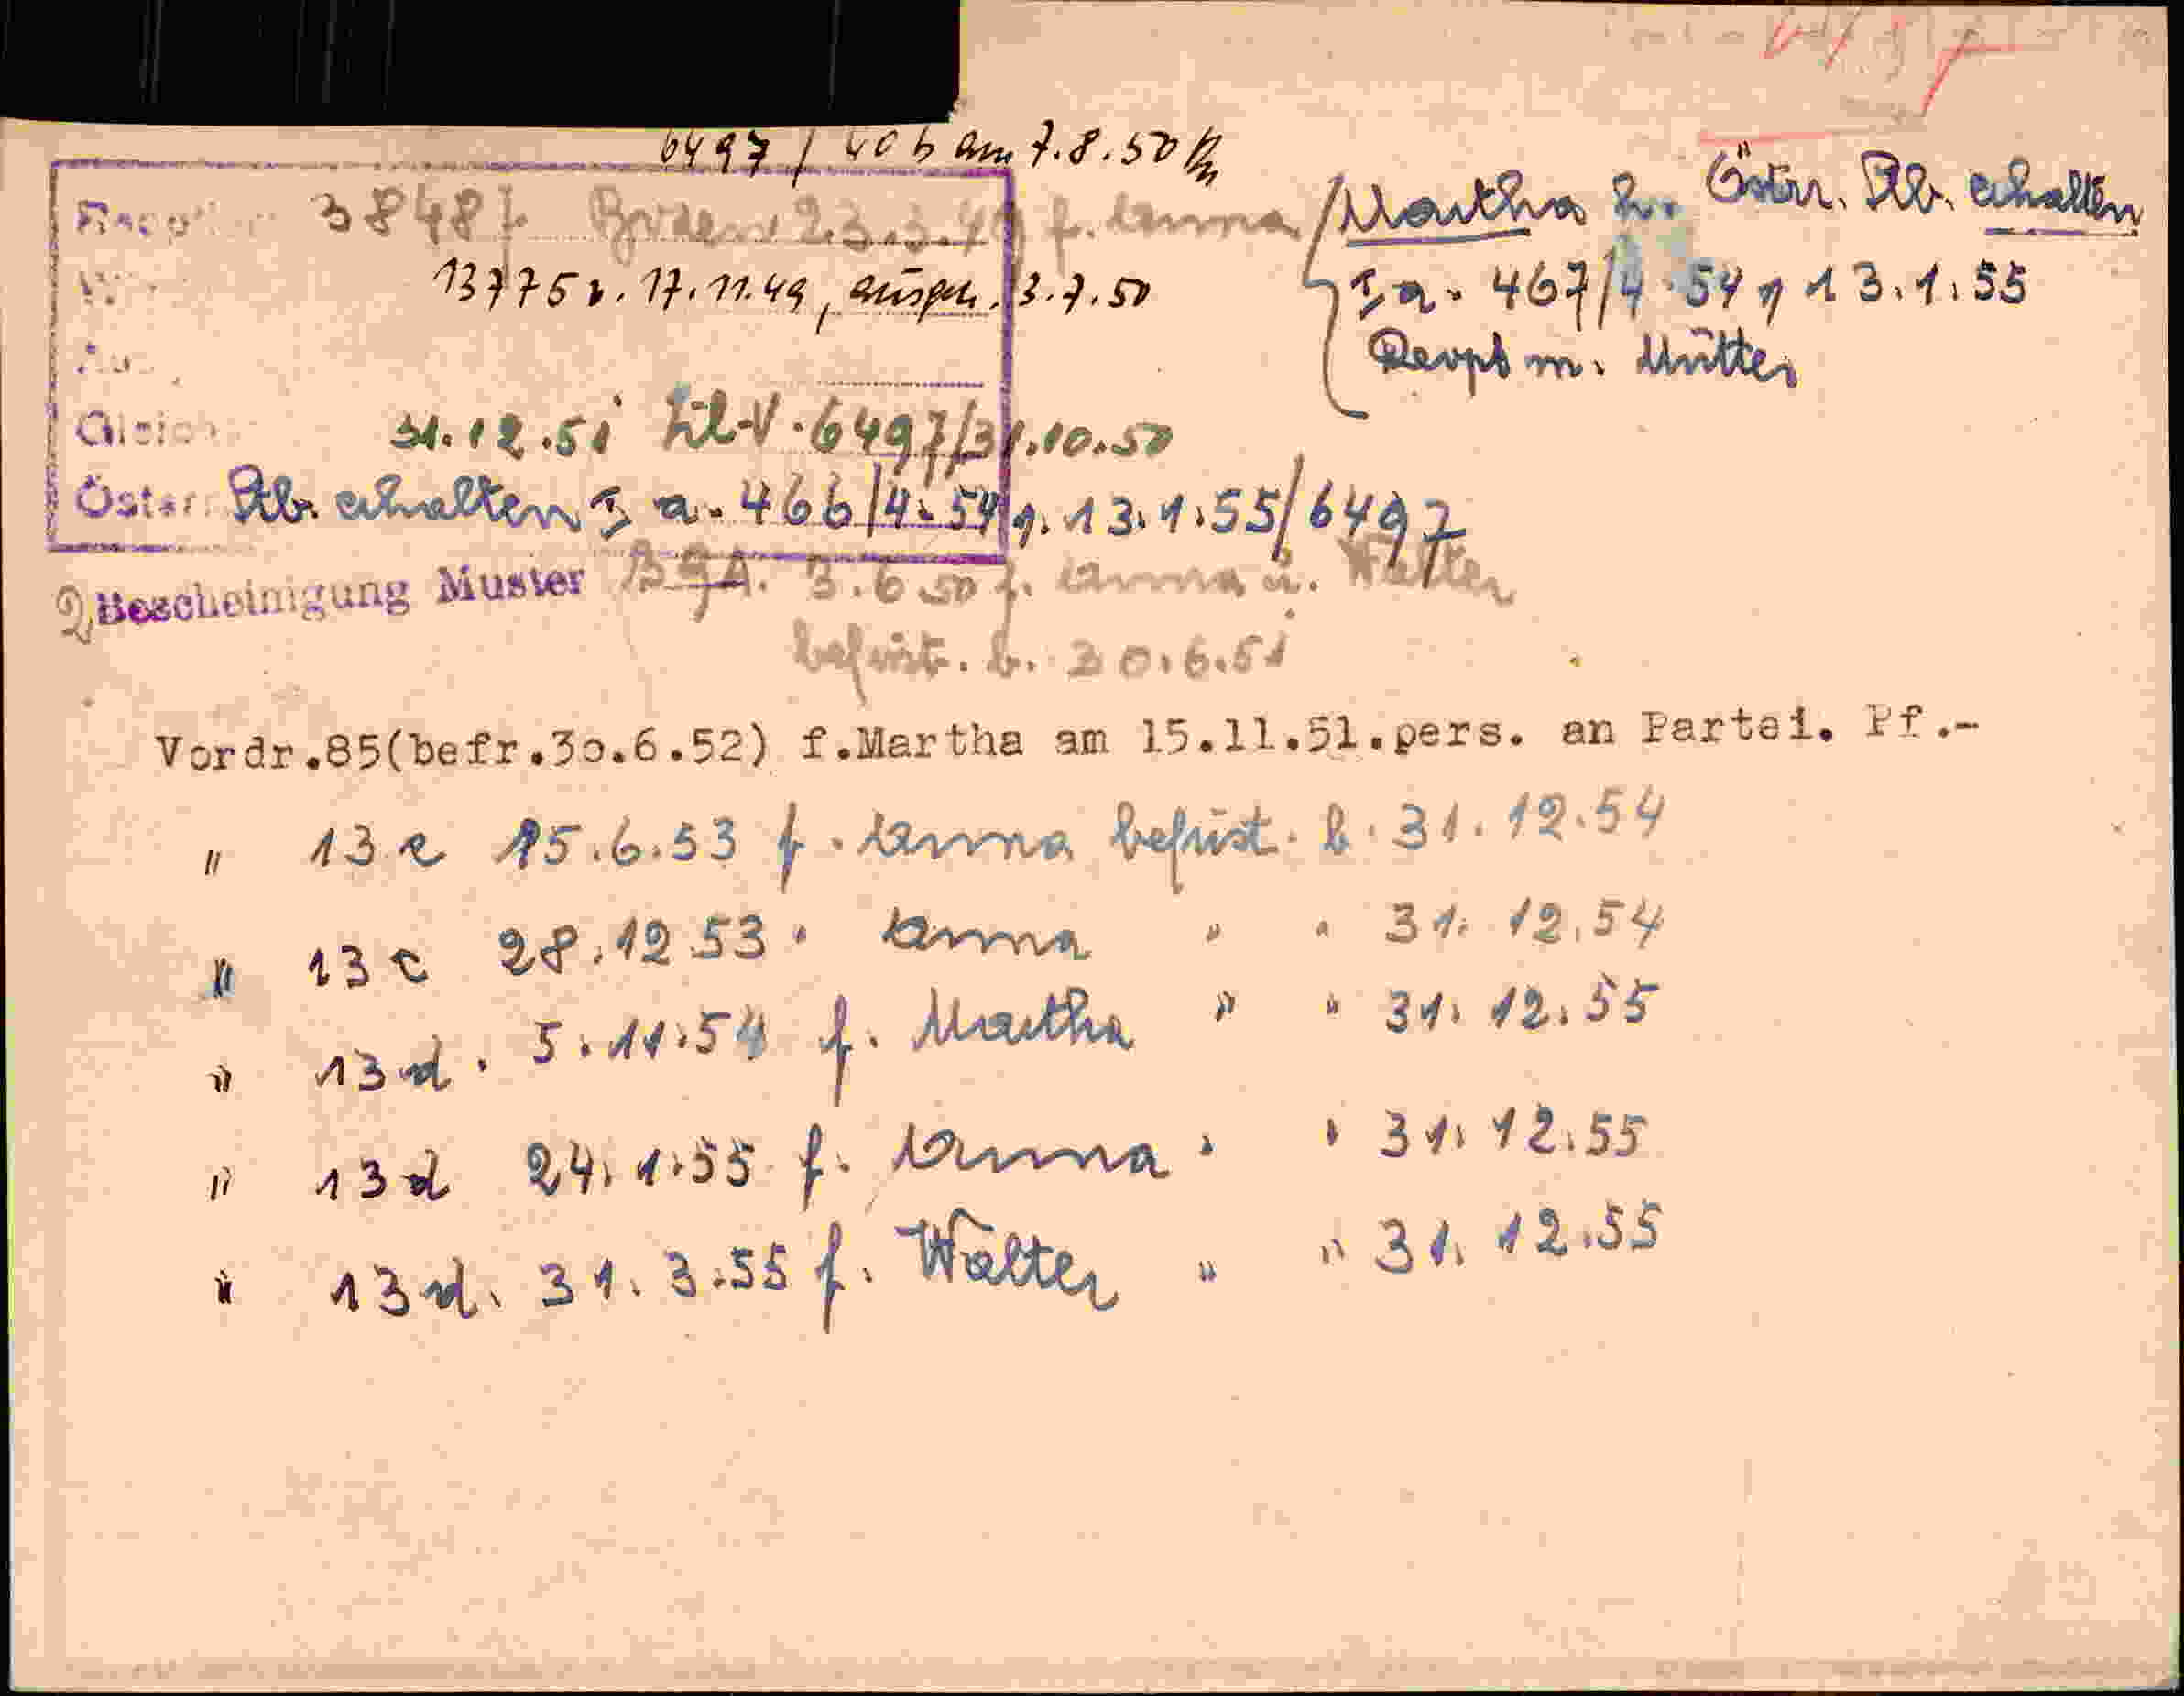 6497 / 40 b am 7.8.50
3848 f. 23.3.49 f. Anna
13775 v. 17.11.49, ausgeh. 13.7.50
Gleich
31.12.51 6497/31.10.50
Österr. Stb. erhalten I a. 466/4-54 v. 13.1.55/6497
Martha h. Österr. Stb. erhalten
I a. 467/4-54 v 13.1.55
m. Mutter
2, Bescheinigung Muster 3.6.50 f. Anna u. Walter
befrist. b. 30.6.51
Vordr.85(befr.30.6.52) f.Martha am 15.11.51.pers. an Partei. Pf.-
" 13 c 15.6.53 f. Anna befrist. b. 31.12.54
" 13 c 28.12.53 " Anna " " 31.12.54
" 13 d. 5.11.54 f. Martha " " 31.12.55
" 13 d 24.1.55 f. Anna " " 31.12.55
" 13 d. 31.3.55 f. Walter " " 31.12.55